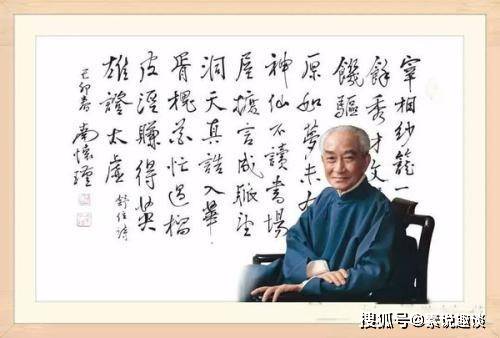 宰相紗籠一
餘秀才文
饑驅
原如夢未
神仙不讀書場
屋摭言成脈望
洞天真誥入華
胥槐花忙過榴
皮賺得英
雄證太虛
舒位詩
己卯春 南懷瑾
搜狐号@素说趣谈